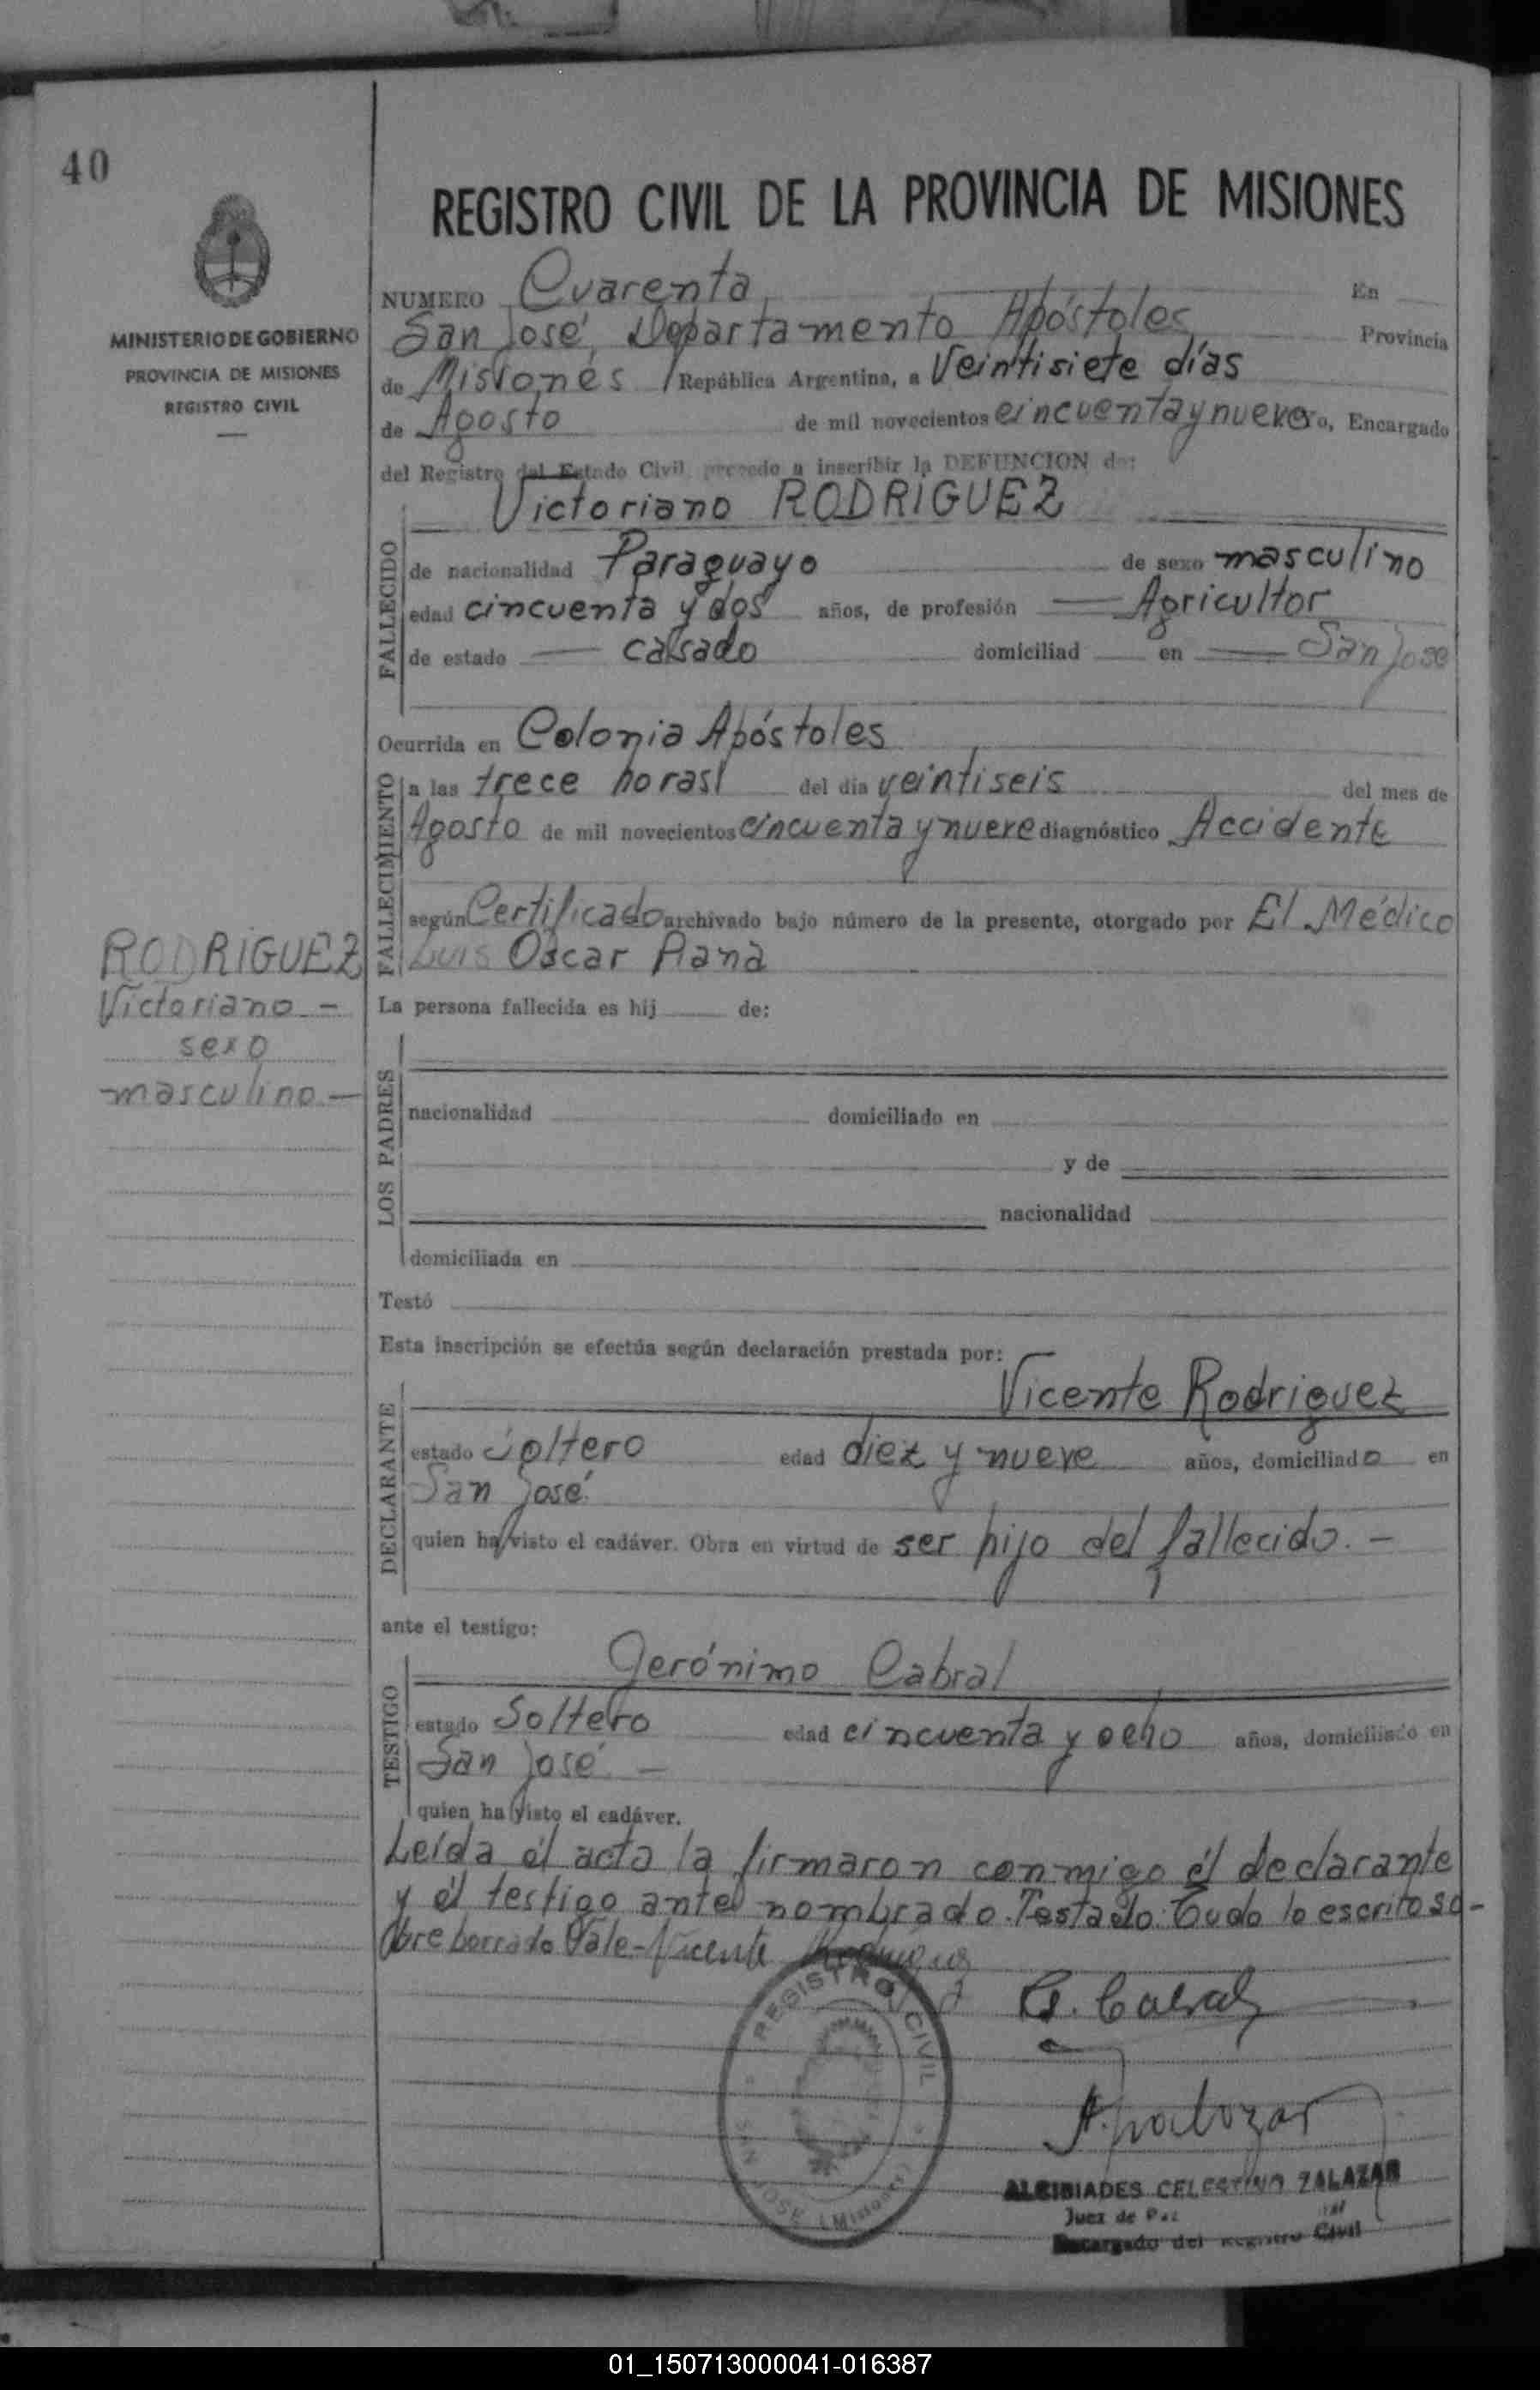 40
REGISTRO CIVIL DE LA PROVINCIA DE MISIONES
MINISTERIO DE GOBIERNO
PROVINCIA DE MISIONES
REGISTRO CIVIL
NUMERO Cuarenta En
San José, Departamento Apóstoles Provincia
de Misiones República Argentina, a Veintisiete días
de Agosto de mil novecientos cincuenta y nueve yo, Encargado
del Registro del Estado Civil procedo a inscribir la DEFUNCION de:
Victoriano RODRIGUEZ
FALLECIDO
de nacionalidad Paraguayo de sexo masculino
edad cincuenta y dos años, de profesión Agricultor
de estado casado domiciliad en San José
Ocurrida en Colonia Apóstoles
FALLECIMIENTO
a las trece horas del día veintiseis del mes de
Agosto de mil novecientos cincuenta y nueve diagnóstico Accidente
según Certificado archivado bajo número de la presente, otorgado por El Médico
Luis Oscar
RODRIGUEZ
Victoriano -
sexo
masculino -
La persona fallecida es hij de:
LOS PADRES
nacionalidad domiciliado en
y de
nacionalidad
domiciliada en
Testó
Esta inscripción se efectúa según declaración prestada por:
Vicente Rodriguez
DECLARANTE
estado soltero edad diez y nueve años, domiciliado en
San José
quien ha visto el cadáver. Obra en virtud de ser hijo del fallecido. -
ante el testigo:
Gerónimo Cabral
TESTIGO
estado Soltero edad cincuenta y ocho años, domiciliado en
San José -
quien ha visto el cadáver.
Leída el acta la firmaron conmigo él declarante
y él testigo ante nombrado. Testado: Todo lo escrito so-
bre borrado Vale - Vicente Rodriguez
G. Cabral
REGISTRO CIVIL
SAN JOSE (Misiones)
ALCIBIADES CELESTINO ZALAZAR
Juez de Paz
Encargado del Registro Civil
01_150713000041-016387